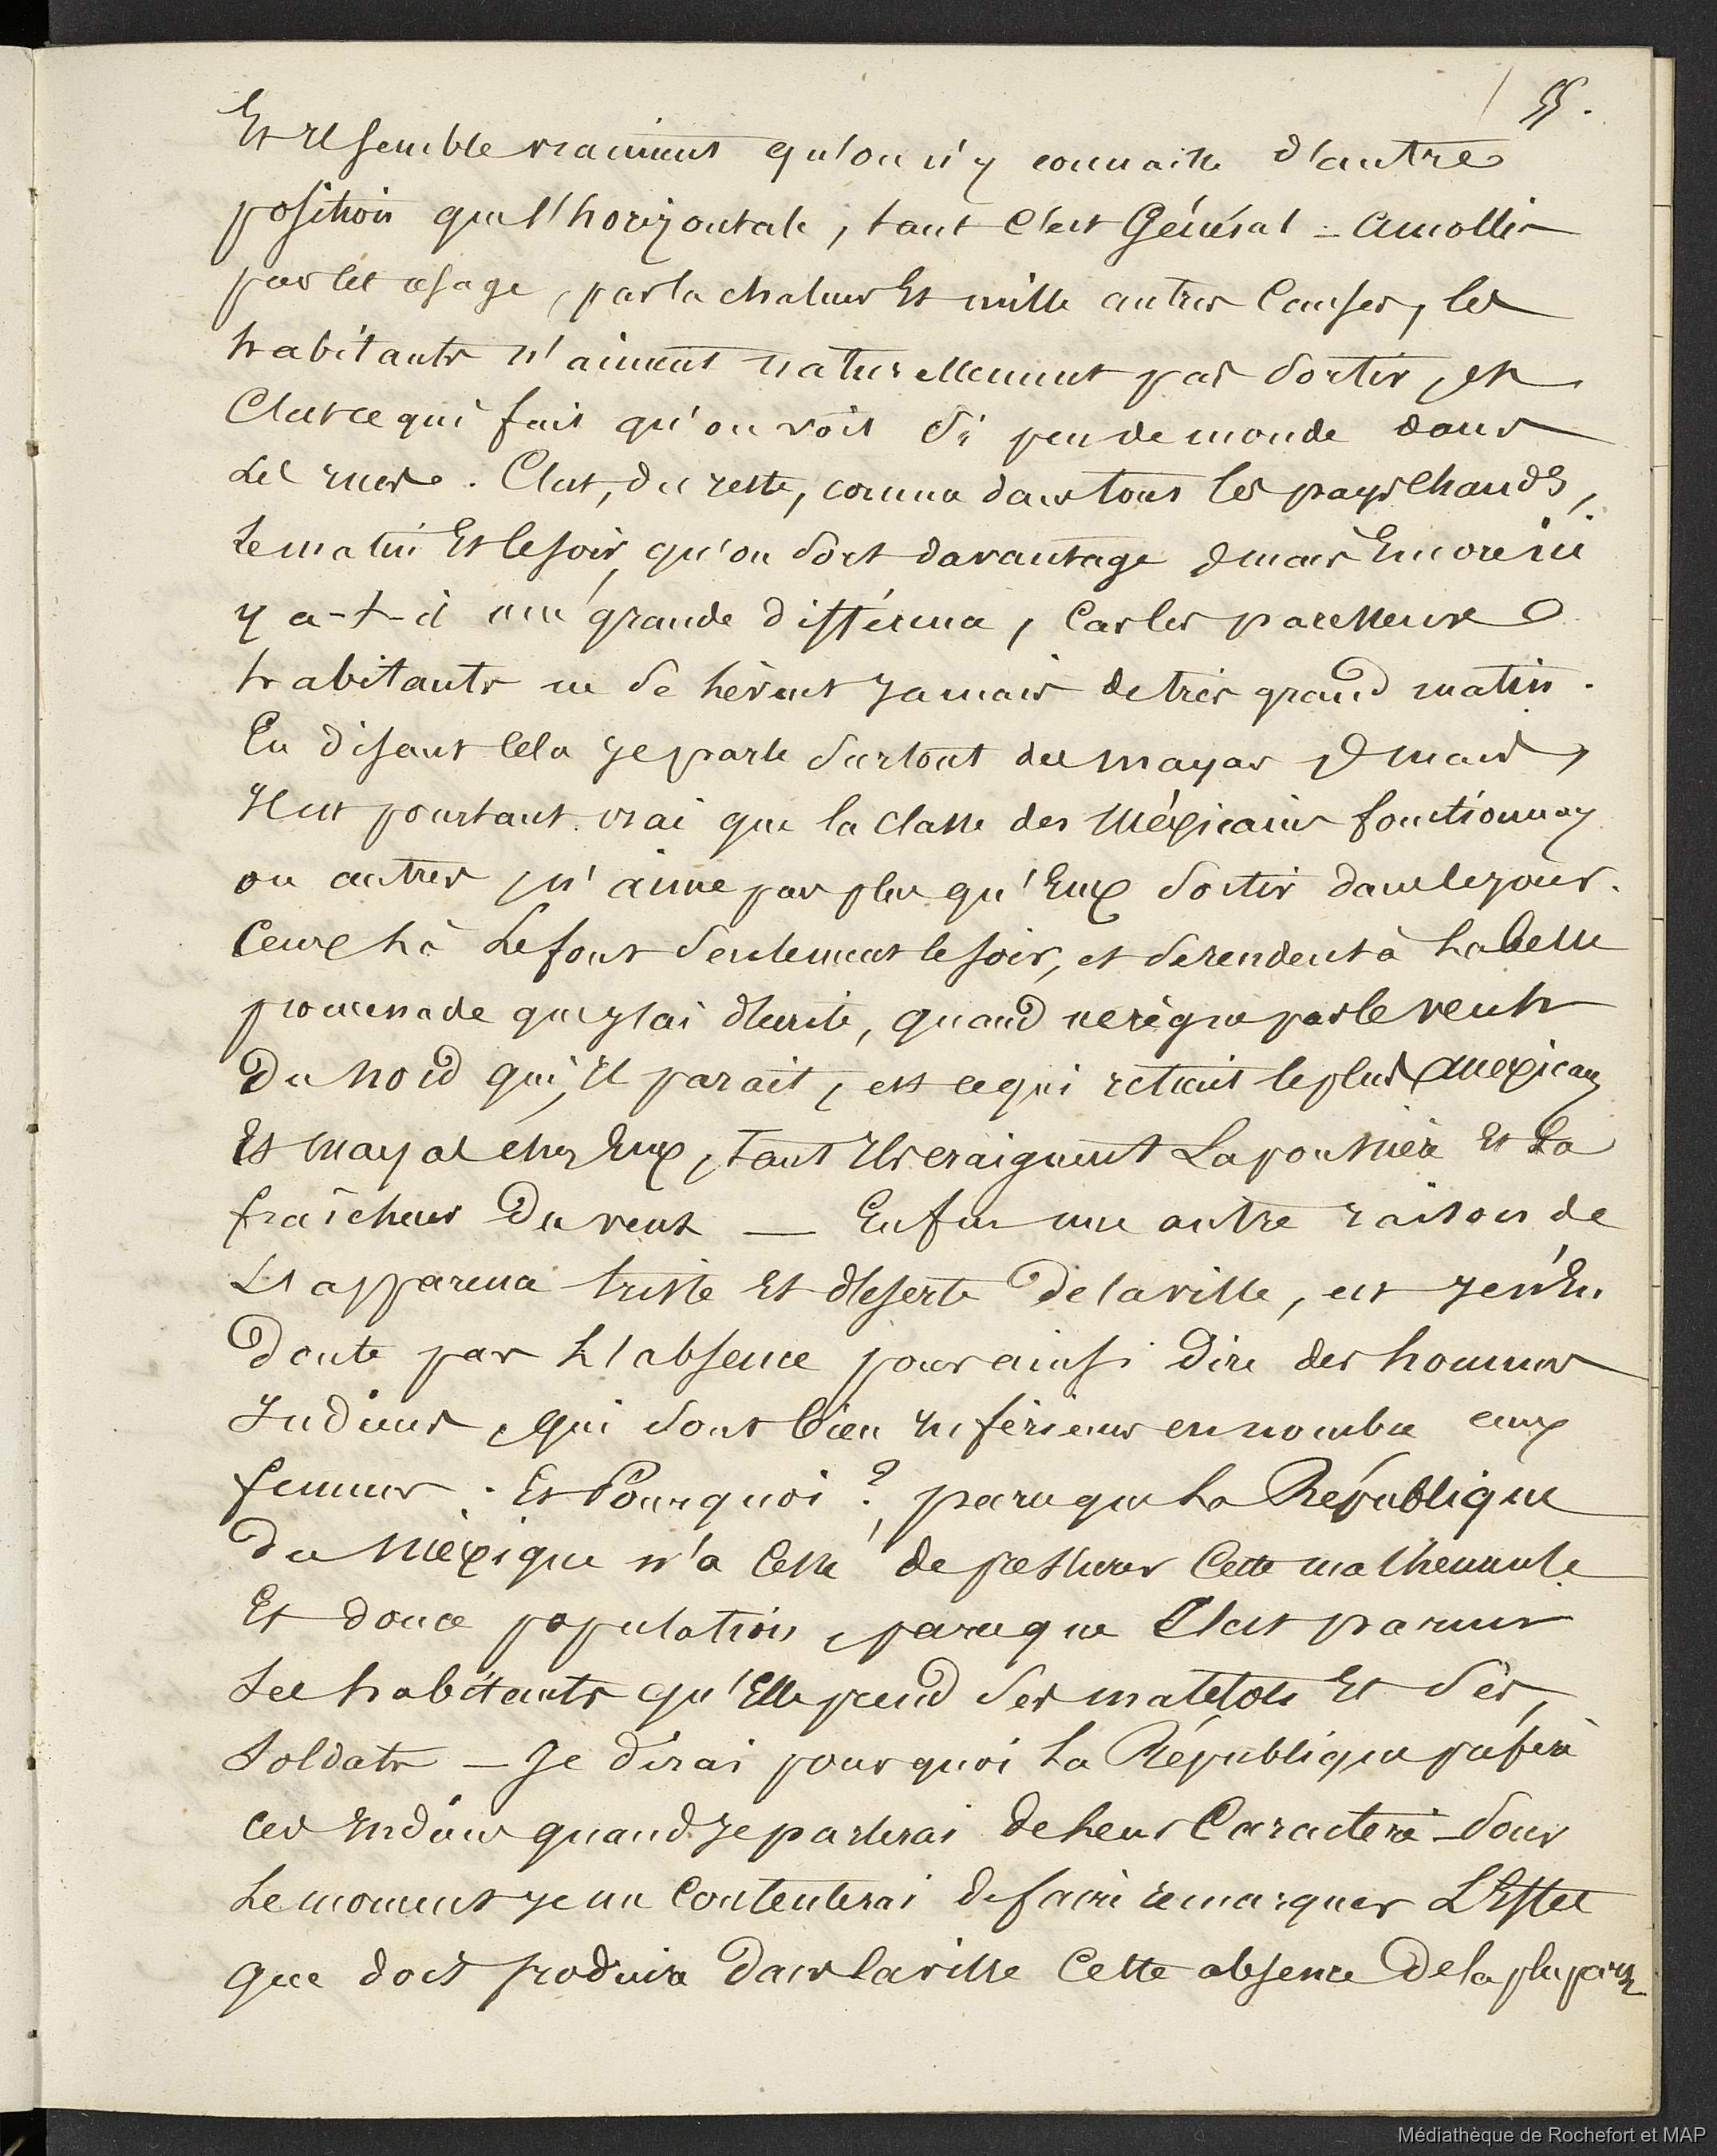 55.
Et il semble vraiment qu'on n'y connaisse d'autre
position que l'horizontale, tant c'est Général - Amollis
par cet usage, par la chaleur Et mille autres Causes, les
habitants n'aiment naturellement pas sortir, et
C'est ce qui fait qu'on voit si peu de monde dans
les rues. C'est, du reste, comme dans tous les pays chauds,
le matin Et le soir, qu'on sort davantage mais Encore ici
y a-t-il une grande différence, Car les paresseux
habitants ne se lèvent jamais de très grand matin.
En disant Cela je parle surtout des mayas mais,
Il est pourtant vrai que la classe des Méxicains fonctionnaires
ou autres n'aime pas plus qu'Eux sortir dans le jour.
Ceux là le font seulement le soir, et se rendent à la belle
promenade que j'ai décrite, quand ne règne pas le vent
du Nord qui, Il parait, est ce qui retient le plus Mexicains
Et Mayas chez Eux, tant Ils craignent la poussière Et la
fraîcheur du vent — Enfin une autre raison de
L'apparence triste Et déserte de la ville, est je n'En
doute pas L'absence pour ainsi dire des hommes
Indiens, qui sont bien Inférieurs en nombre aux
femmes : Et Pourquoi ? parce que la République
du Méxique n'a Cessé de pressurer Cette malheureuse
Et douce population, parce que C'est parmi
les habitants qu'Elle prend ses matelots Et ses,
soldats — Je dirai pourquoi la République préfère
Ces Indiens quand je parlerai de leur Caractère - Pour
le moment je me Contenterai de faire remarquer L'Effet
que doit produire dans la ville Cette absence de la plupart
Médiathèque de Rochefort et MAP